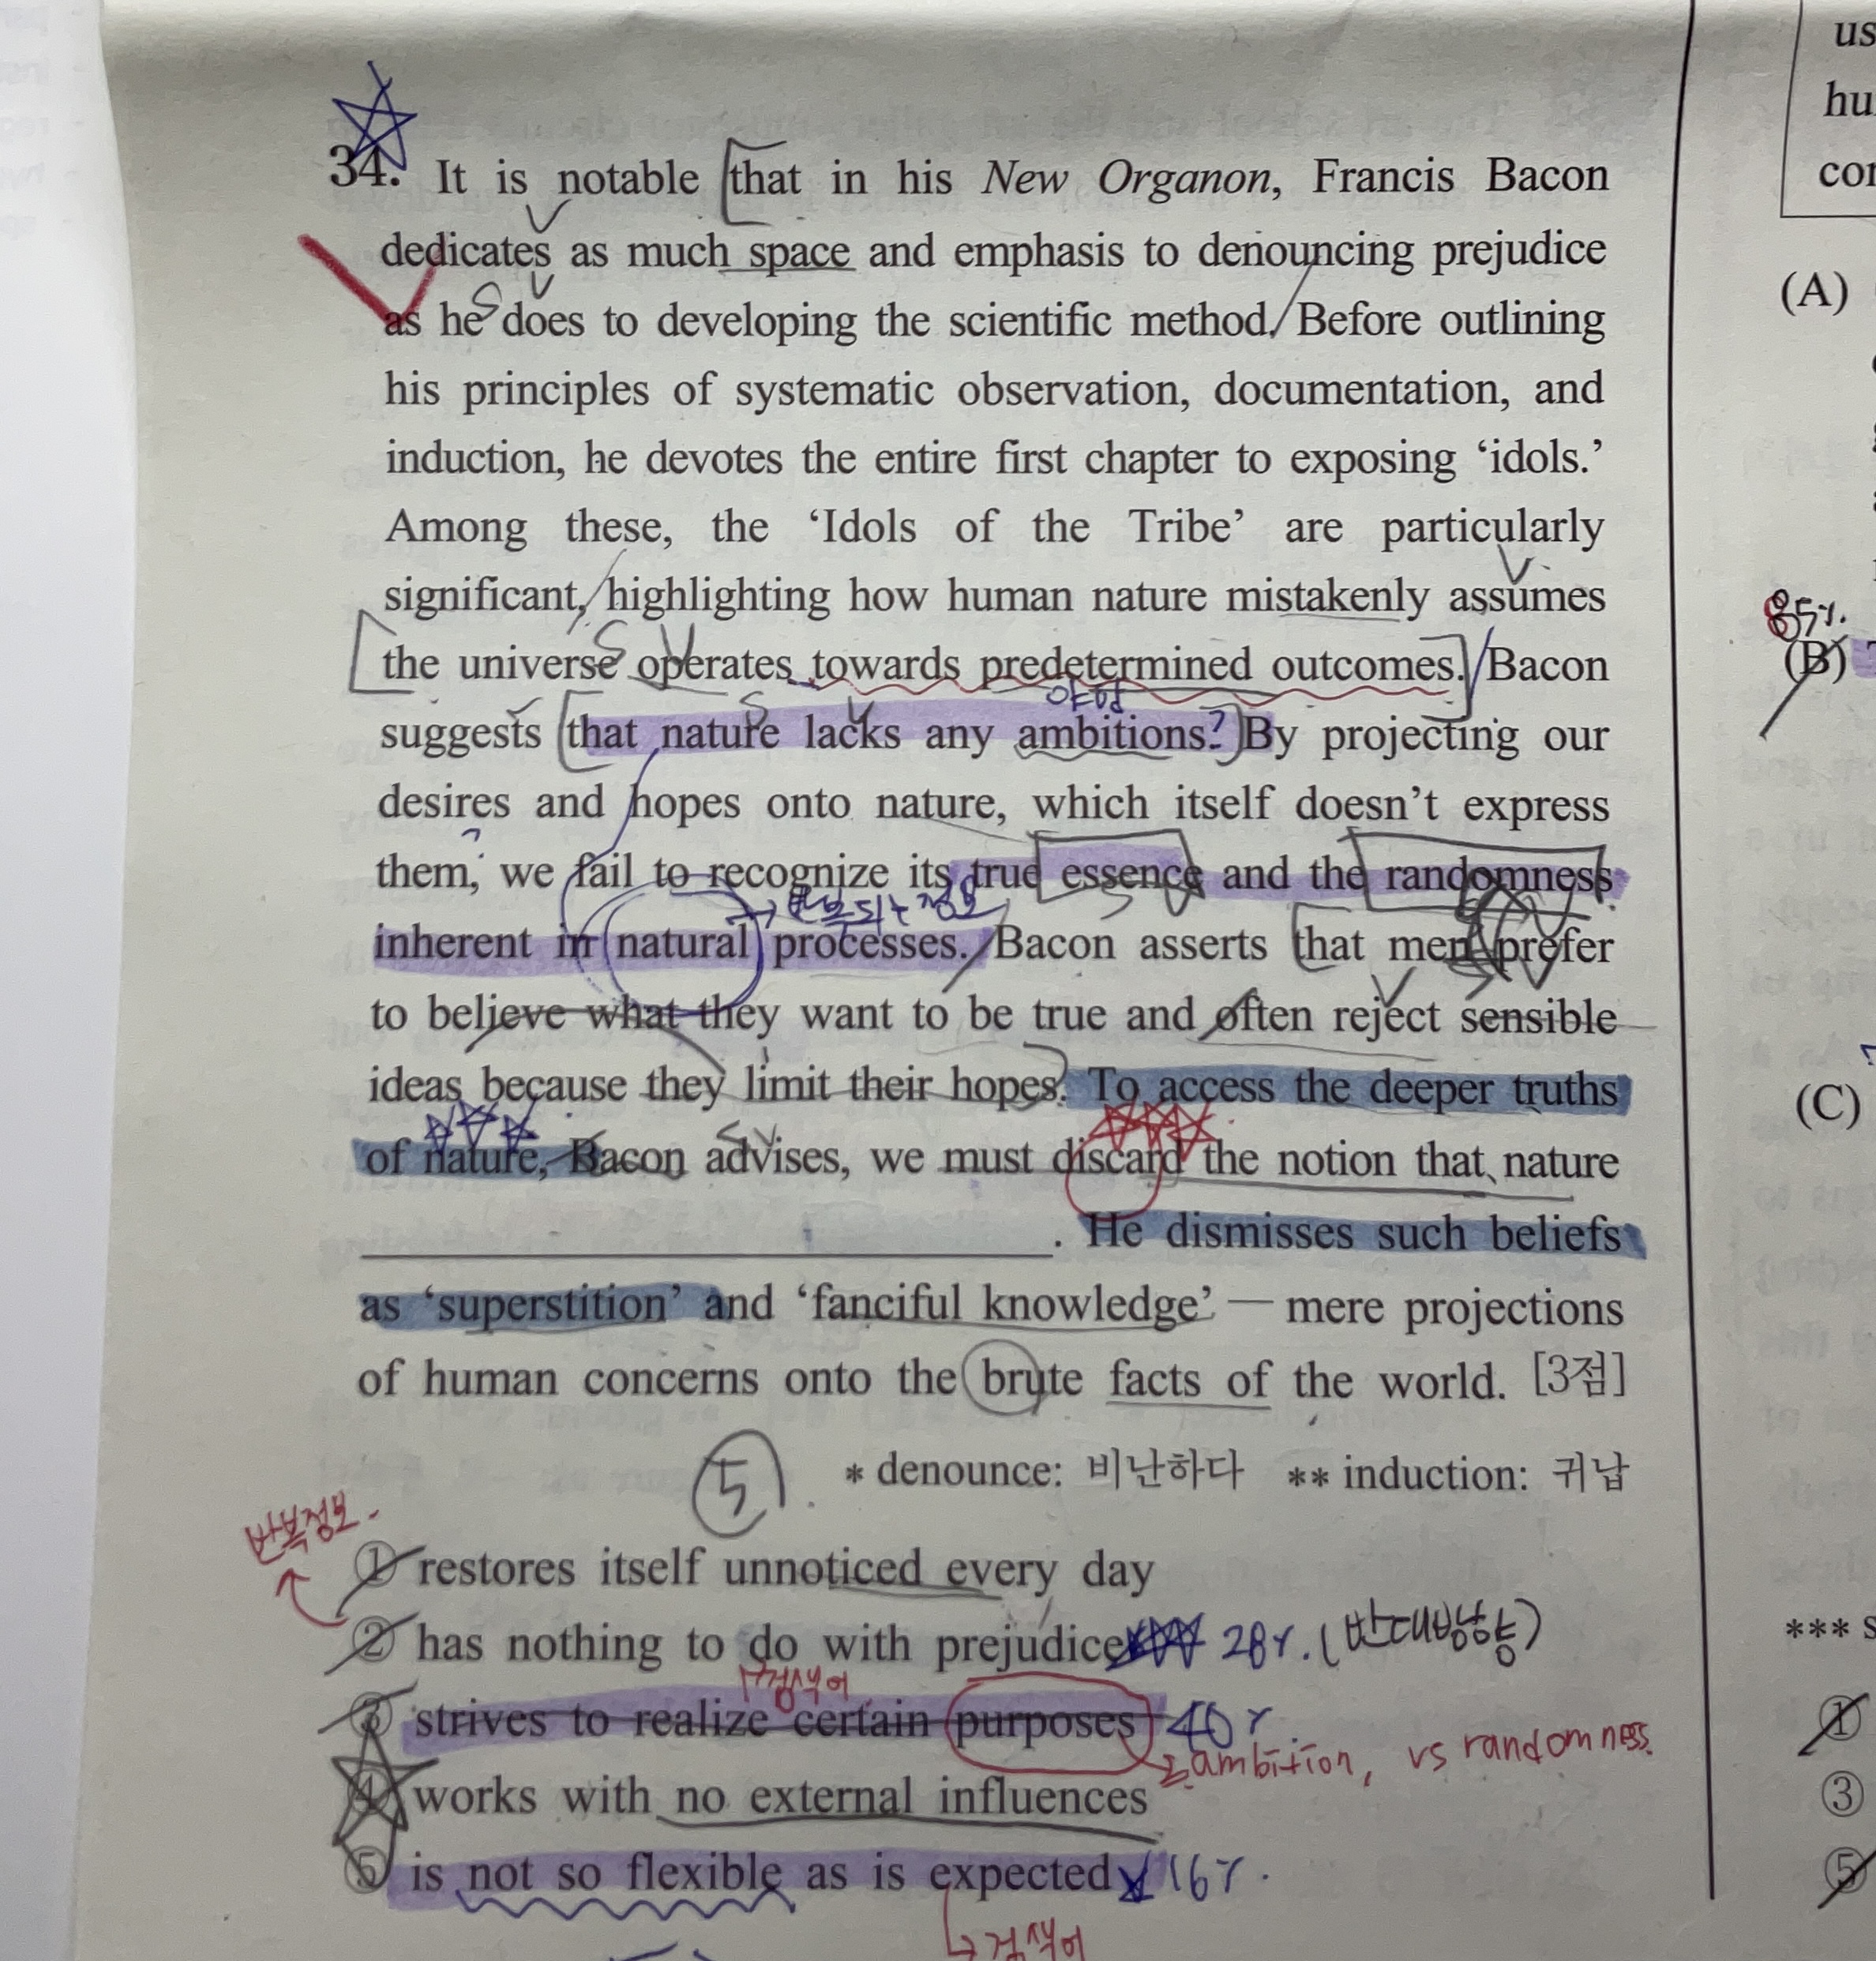 34. It is notable that in his New Organon, Francis Bacon
dedicates as much space and emphasis to denouncing prejudice
as he does to developing the scientific method. Before outlining
his principles of systematic observation, documentation, and
induction, he devotes the entire first chapter to exposing ‘idols.’
Among these, the ‘Idols of the Tribe’ are particularly
significant, highlighting how human nature mistakenly assumes
the universe operates towards predetermined outcomes. Bacon
야망
suggests that nature lacks any ambitions. By projecting our
desires and hopes onto nature, which itself doesn’t express
them, we fail to recognize its true essence and the randomness
inherent in natural processes. Bacon asserts that men prefer
to believe what they want to be true and often reject sensible
ideas because they limit their hopes. To access the deeper truths
of nature, Bacon advises, we must discard the notion that nature
. He dismisses such beliefs
as ‘superstition’ and ‘fanciful knowledge’ — mere projections
of human concerns onto the brute facts of the world. [3점]
5
* denounce: 비난하다 ** induction: 귀납
반복정보.
① restores itself unnoticed every day
② has nothing to do with prejudice 28%. (반대방향)
검색어
③ strives to realize certain purposes 40%.
ambition, vs randomness
④ works with no external influences
⑤ is not so flexible as is expected 16%.
검색어
us
hu
con
(A)
85%.
(B)
(C)
*** s
①
③
⑤